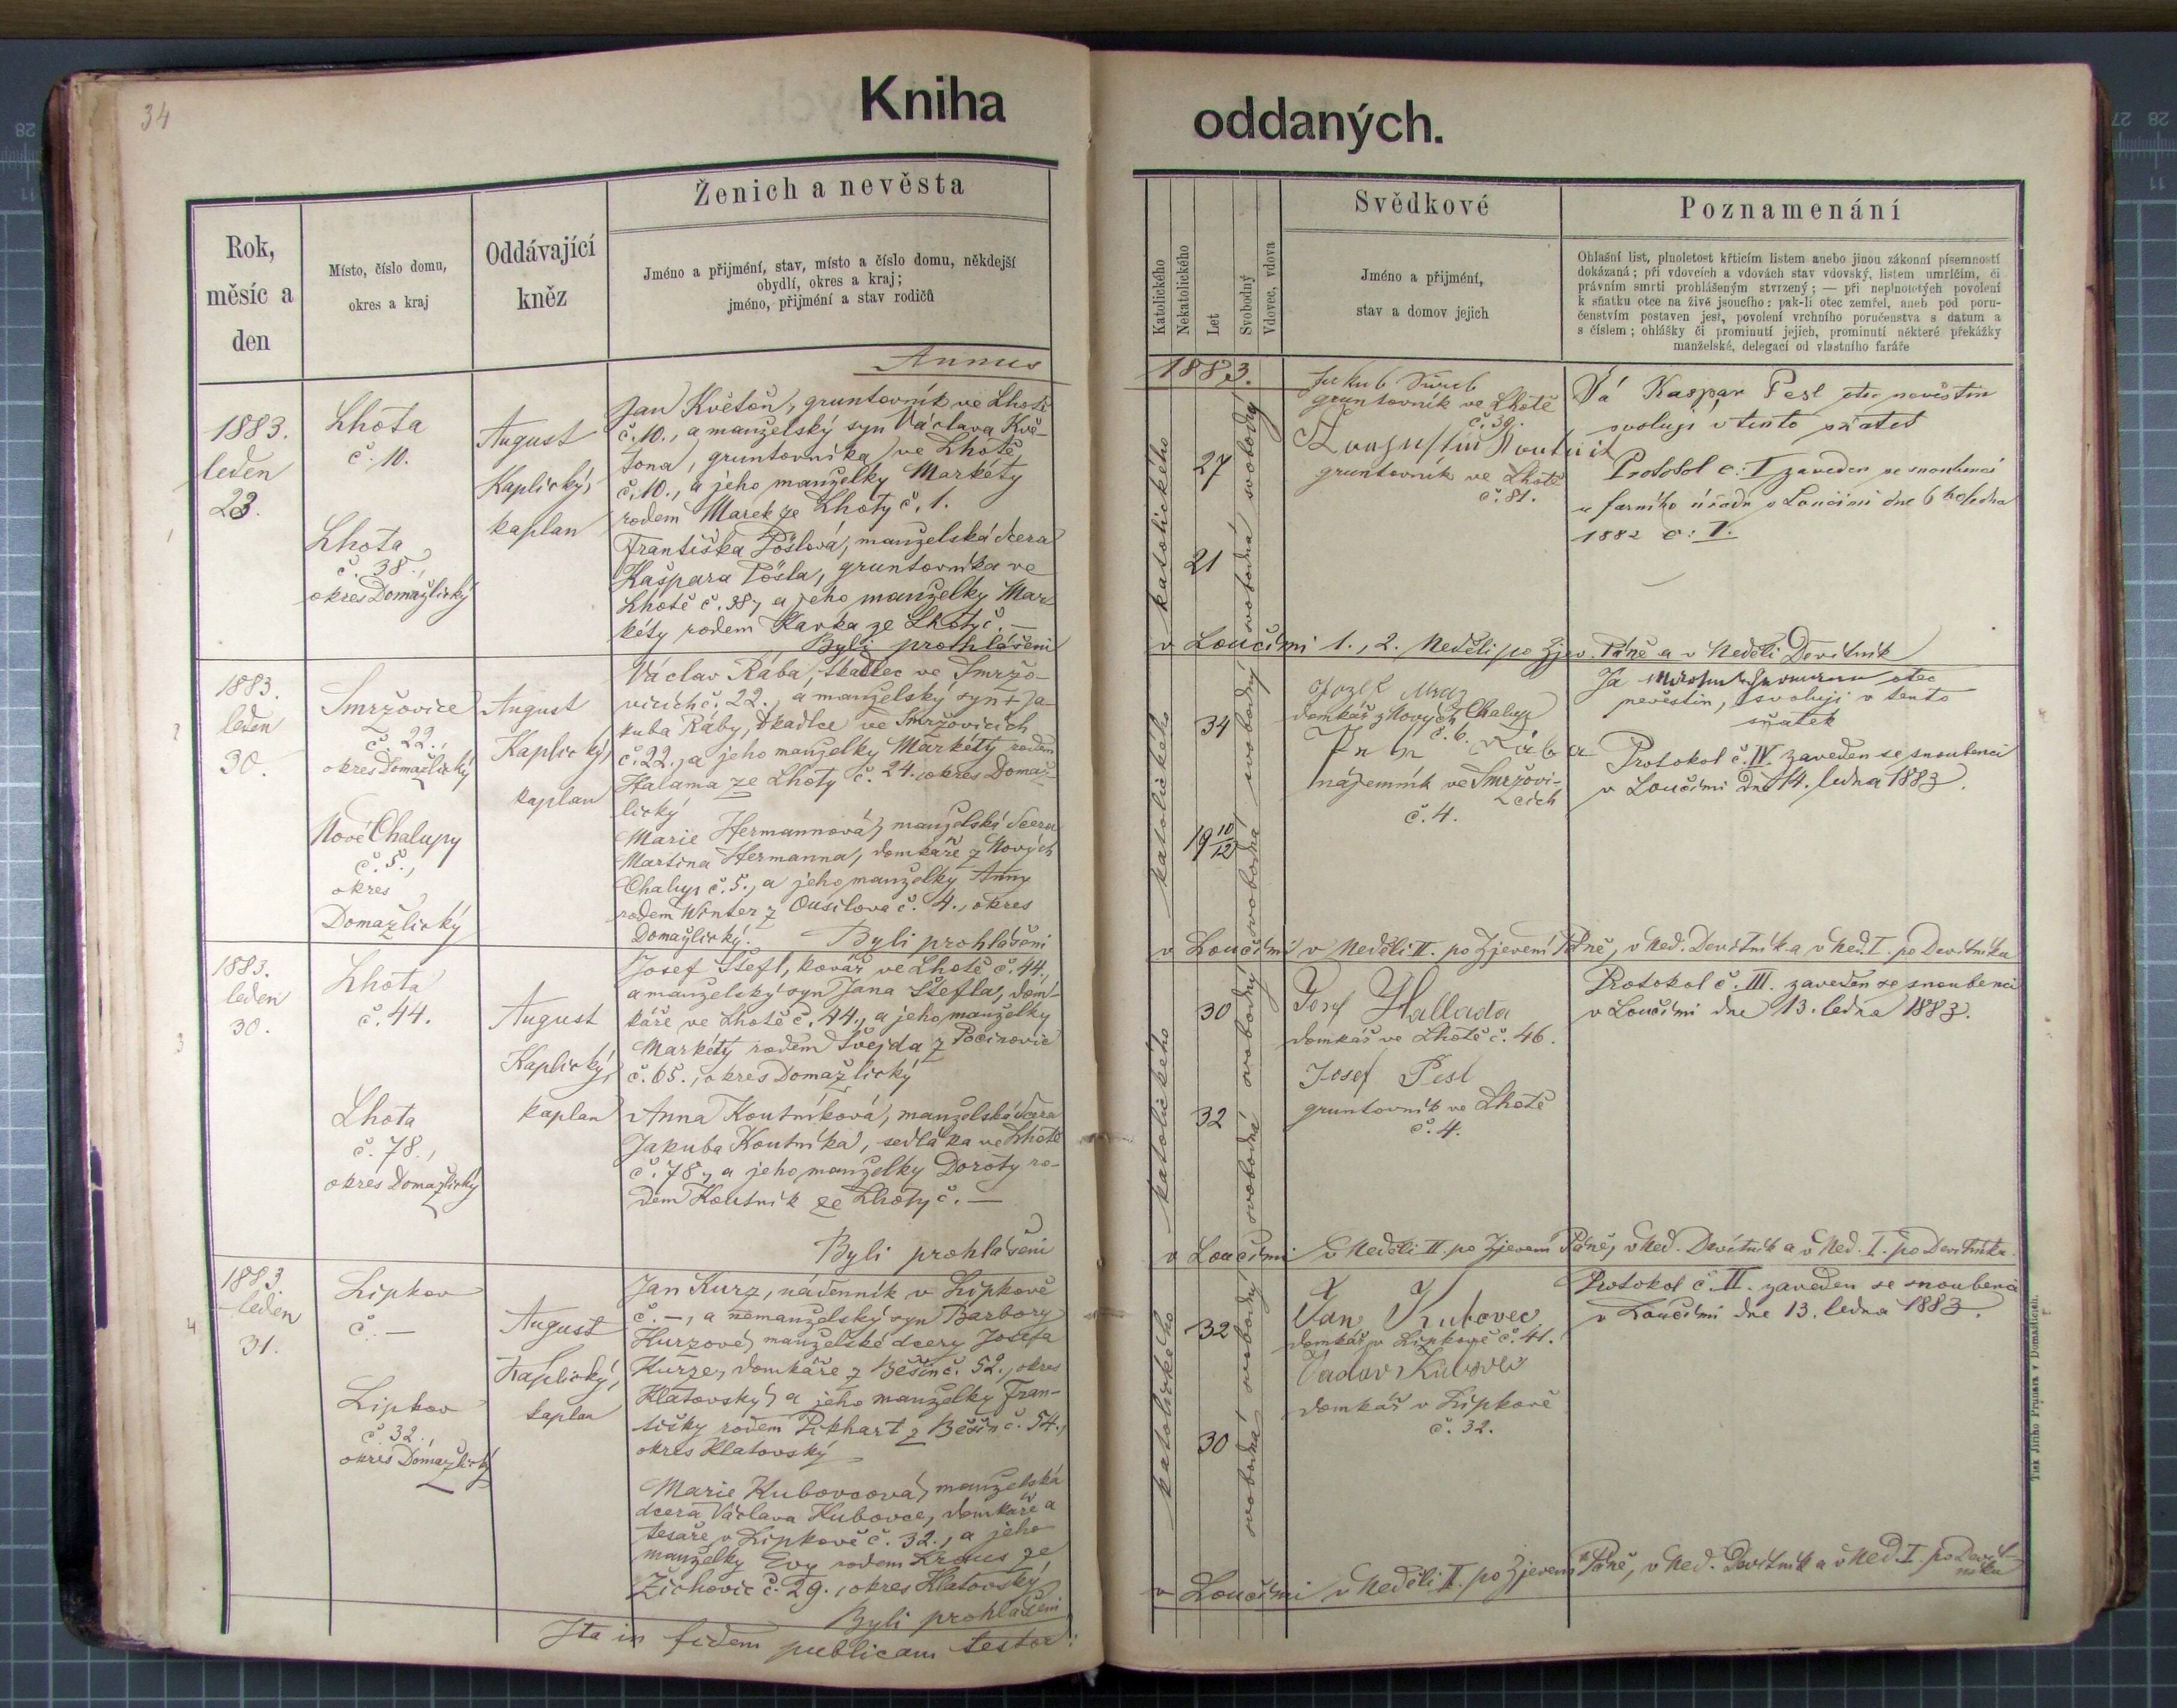 34
Kniha
oddaných.
Rok,
měsíc a
den
Místo, číslo domu,
okres a kraj
Oddávající
kněz
Ženich a nevěsta
Jméno a přijmění, stav, místo a číslo domu, někdejší
obydlí, okres a kraj;
jméno, přijmění a stav rodičů
Katolického
Nekatolického
Let
Svobodný
Vdovec, vdova
Svědkové
Jméno a přijmění,
stav a domov jejich
Poznamenání
Ohlašní list, plnoletost křticím listem anebo jinou zákonní písemností
dokázaná; při vdovcích a vdovách stav vdovský, listem umrlčím, či
právním smrti prohlášeným stvrzený; — při neplnoletých povolení
k sňatku otce na živě jsoucího: pak-li otec zemřel, aneb pod poru-
čenstvím postaven jest, povolení vrchního poručenstva s datum a
s číslem; ohlášky či prominutí jejich, prominutí některé překážky
manželské, delegací od vlastního faráře
Annus
1883.
1
1883.
leden
23.
Lhota
č. 10.
Lhota
č. 38.,
okres Domažlický
August
Kaplický,
kaplan
Jan Květoň, gruntovník ve Lhotě
č. 10., a manželský syn Václava Kvě-
tona, gruntovníka ve Lhotě,
č. 10., a jeho manželky Markéty
rodem Marek ze Lhoty č. 1.
Františka Pöslová, manželská dcera
Kašpara Pösla, gruntovníka ve
Lhotě č. 38, a jeho manželky Mar
kéty rodem Kavka ze Lhoty č. —
Byli prohlášeni
katolického
katolického
27
21
svobodný
svobodná
Jakub
gruntovník ve Lhotě
č. 39.
gruntovník ve Lhotě
č. 81.
Já Kaspar Pesl otec nevěstin
svoluji v tento sňatek
Protokol č: I zaveden se snoubenci
u farního úřadu v Loučimi dne 6ho ledna
1882 č: I.
v Loučimi 1., 2. Neděli po Zjev. Páně a v Neděli Devítník
2
1883.
leden
30.
Smržovice
č. 22.,
okres Domažlický
Nové Chalupy
č. 5.,
okres
Domažlický
August
Kaplický,
kaplan
Václav Rába, tkadlec ve Smržo-
vicích č. 22., a manželský syn + Ja-
kuba Ráby, tkadlce ve Smržovicích
č. 22., a jeho manželky Markéty rodem
Halama ze Lhoty č. 24. okres Domaž-
lický
Marie Hermannová, manželská dcera
Martina Hermanna, domkáře z Nových
Chalup č. 5., a jeho manželky Anny
rodem Winter z Ousilova č. 4., okres
Domažlický.
Byli prohlášeni
katolického
katolického
34
19 10/12
svobodný
svobodná
Jozef Mraz
domkář z Nových Chalup
č. 6.
Rába
nájemník ve Smržovi-
cích
č. 4.
Já otec
nevěstin, svoluji v tento
sňatek
Protokol č. IV. zaveden se snoubenci
v Loučimi dne 14. ledna 1883.
v Loučimi v Neděli II. po Zjevení Páně, v Ned. Devítník a v Ned. I. po Devítníku
3
1883.
leden
30.
Lhota
č. 44.
Lhota
č. 78.,
okres Domažlický
August
Kaplický,
kaplan
Josef Štefl, kovář ve Lhotě č. 44.,
a manželský syn Jana Štefla, dom-
káře ve Lhotě č. 44., a jeho manželky
Markéty rodem Švejda z Pocinovic
č. 65., okres Domažlický
Anna Koutníková, manželská dcera
Jakuba Koutníka, sedláka ve Lhotě
č. 78, a jeho manželky Doroty ro-
dem Koutník ze Lhoty č. —
Byli prohlášeni
katolického
katolického
30
32
svobodný
svobodná
Josef Hallada
domkář ve Lhotě č. 46.
Josef Pesl
gruntovník ve Lhotě
č. 4.
Protokol č. III. zaveden se snoubenci
v Loučimi dne 13. ledna 1883.
v Loučimi v Neděli II. po Zjevení Páně, v Ned. Devítník a v Ned. I. po Devítníku.
4
1883
leden
31.
Lipkov
č. —
Lipkov
č. 32.,
okres Domažlický
August
Kaplický,
kaplan
Jan Kurz, nádenník v Lipkově
č. —, a nemanželský syn Barbory
Kurzové, manželské dcery Josefa
Kurze, domkáře z Běšin č. 52., okres
Klatovský, a jeho manželky Fran-
tišky rodem Pikhart z Běšin č. 54.,
okres Klatovský
Marie Kubovcová, manželská
dcera Václava Kubovce, domkáře a
tesaře v Lipkově č. 32., a jeho
manželky Evy rodem Kraus ze
Žichovic č. 29., okres Klatovský
Byli prohlášeni
katolického
katolického
32
30
svobodný
svobodná
Jan Kubovec
domkář v Lipkově č. 41.
Vaclav Kubovec
domkář v Lipkově
č. 32.
Protokol č. II. zaveden se snoubenci
v Loučimi dne 13. ledna 1883.
v Loučimi v Neděli II. po Zjevení Páně, v Ned. Devítník a v Ned. I. po Devít-
níku
Ita in fidem publicam testor:
Tisk Jiřího Prunara v Domažlicích.